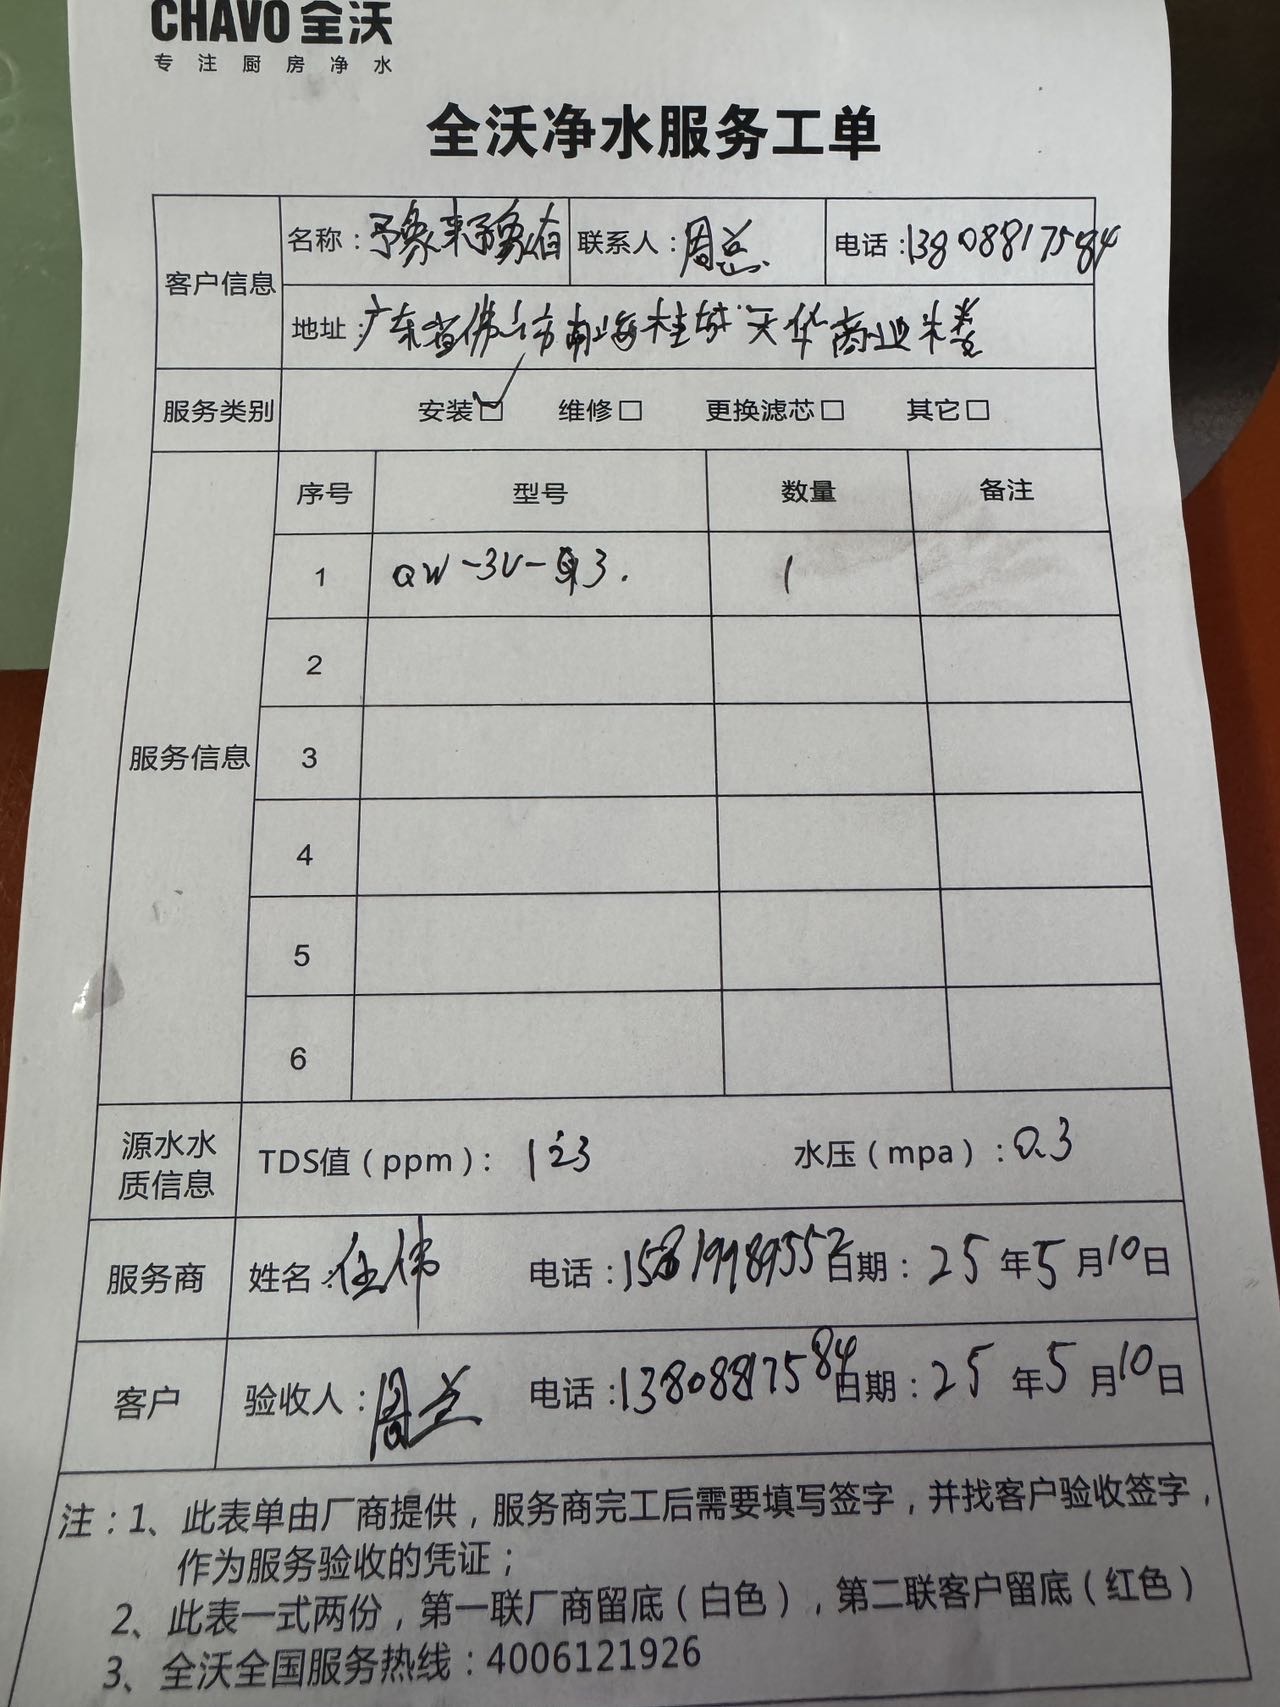 CHAVO 全沃
专注厨房净水
全沃净水服务工单
客户信息
名称：予象来予象省 联系人：周总 电话：13808817584
地址：广东省佛山市南海桂城天华商业大楼
服务类别 安装☑ 维修□ 更换滤芯□ 其它□
服务信息
序号 型号 数量 备注
1 QW-3U- 3. 1
2
3
4
5
6
源水水质信息 TDS值（ppm）：123 水压（mpa）：0.3
服务商 姓名：任伟 电话： 日期：25年5月10日
客户 验收人：周总 电话：13808817584 日期：25年5月10日
注：1、此表单由厂商提供，服务商完工后需要填写签字，并找客户验收签字，
作为服务验收的凭证；
2、此表一式两份，第一联厂商留底（白色），第二联客户留底（红色）
3、全沃全国服务热线：4006121926